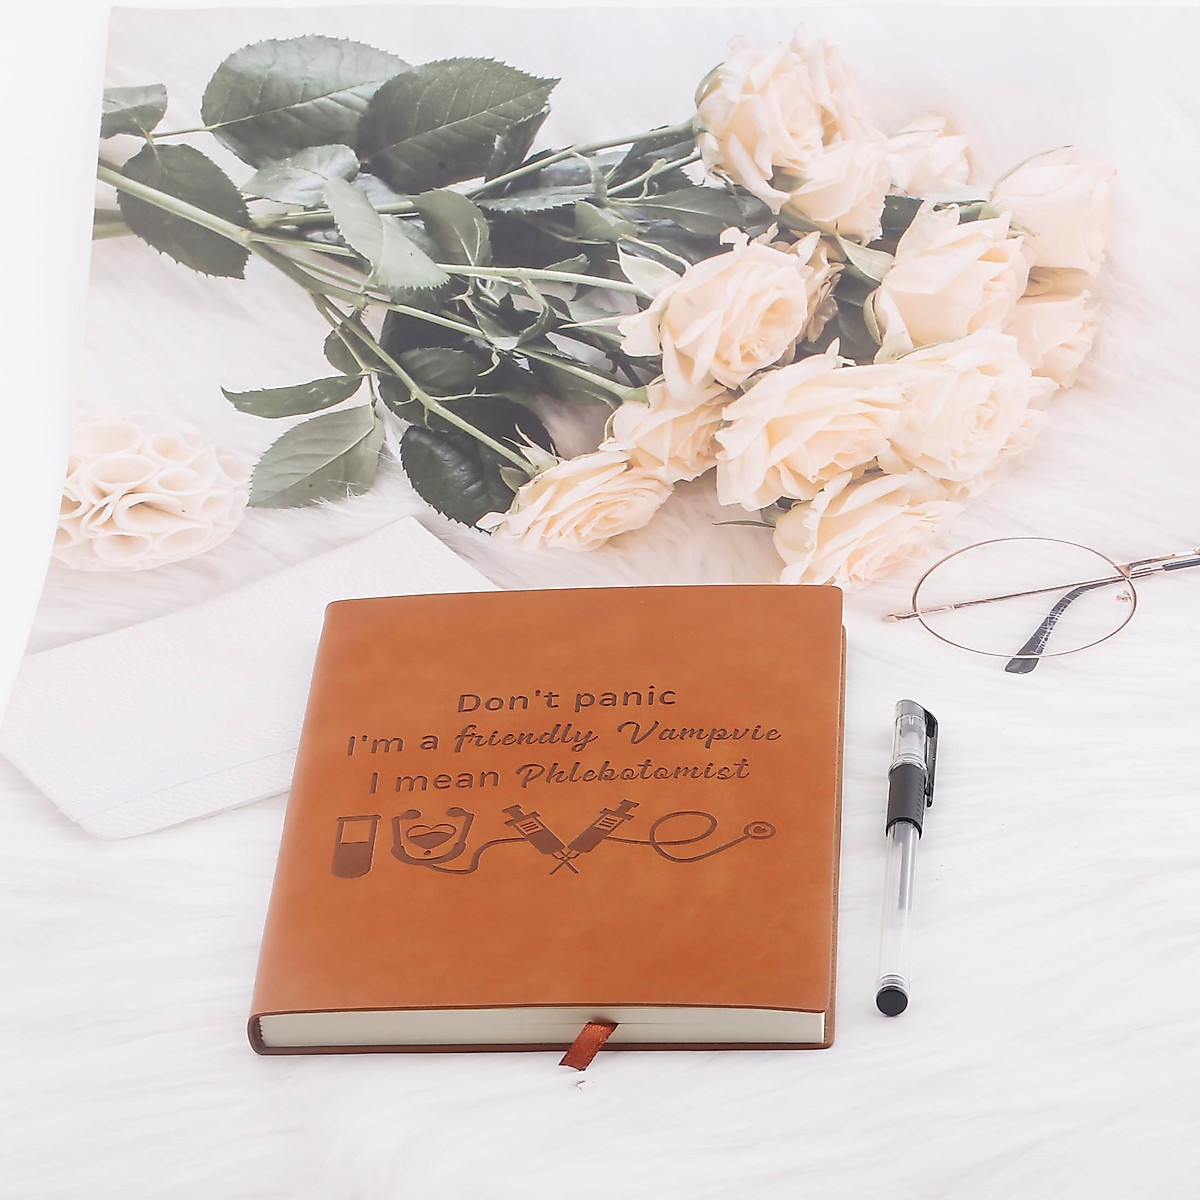 Don't panic
I'm a friendly Vampvie
I mean Phlebotomist